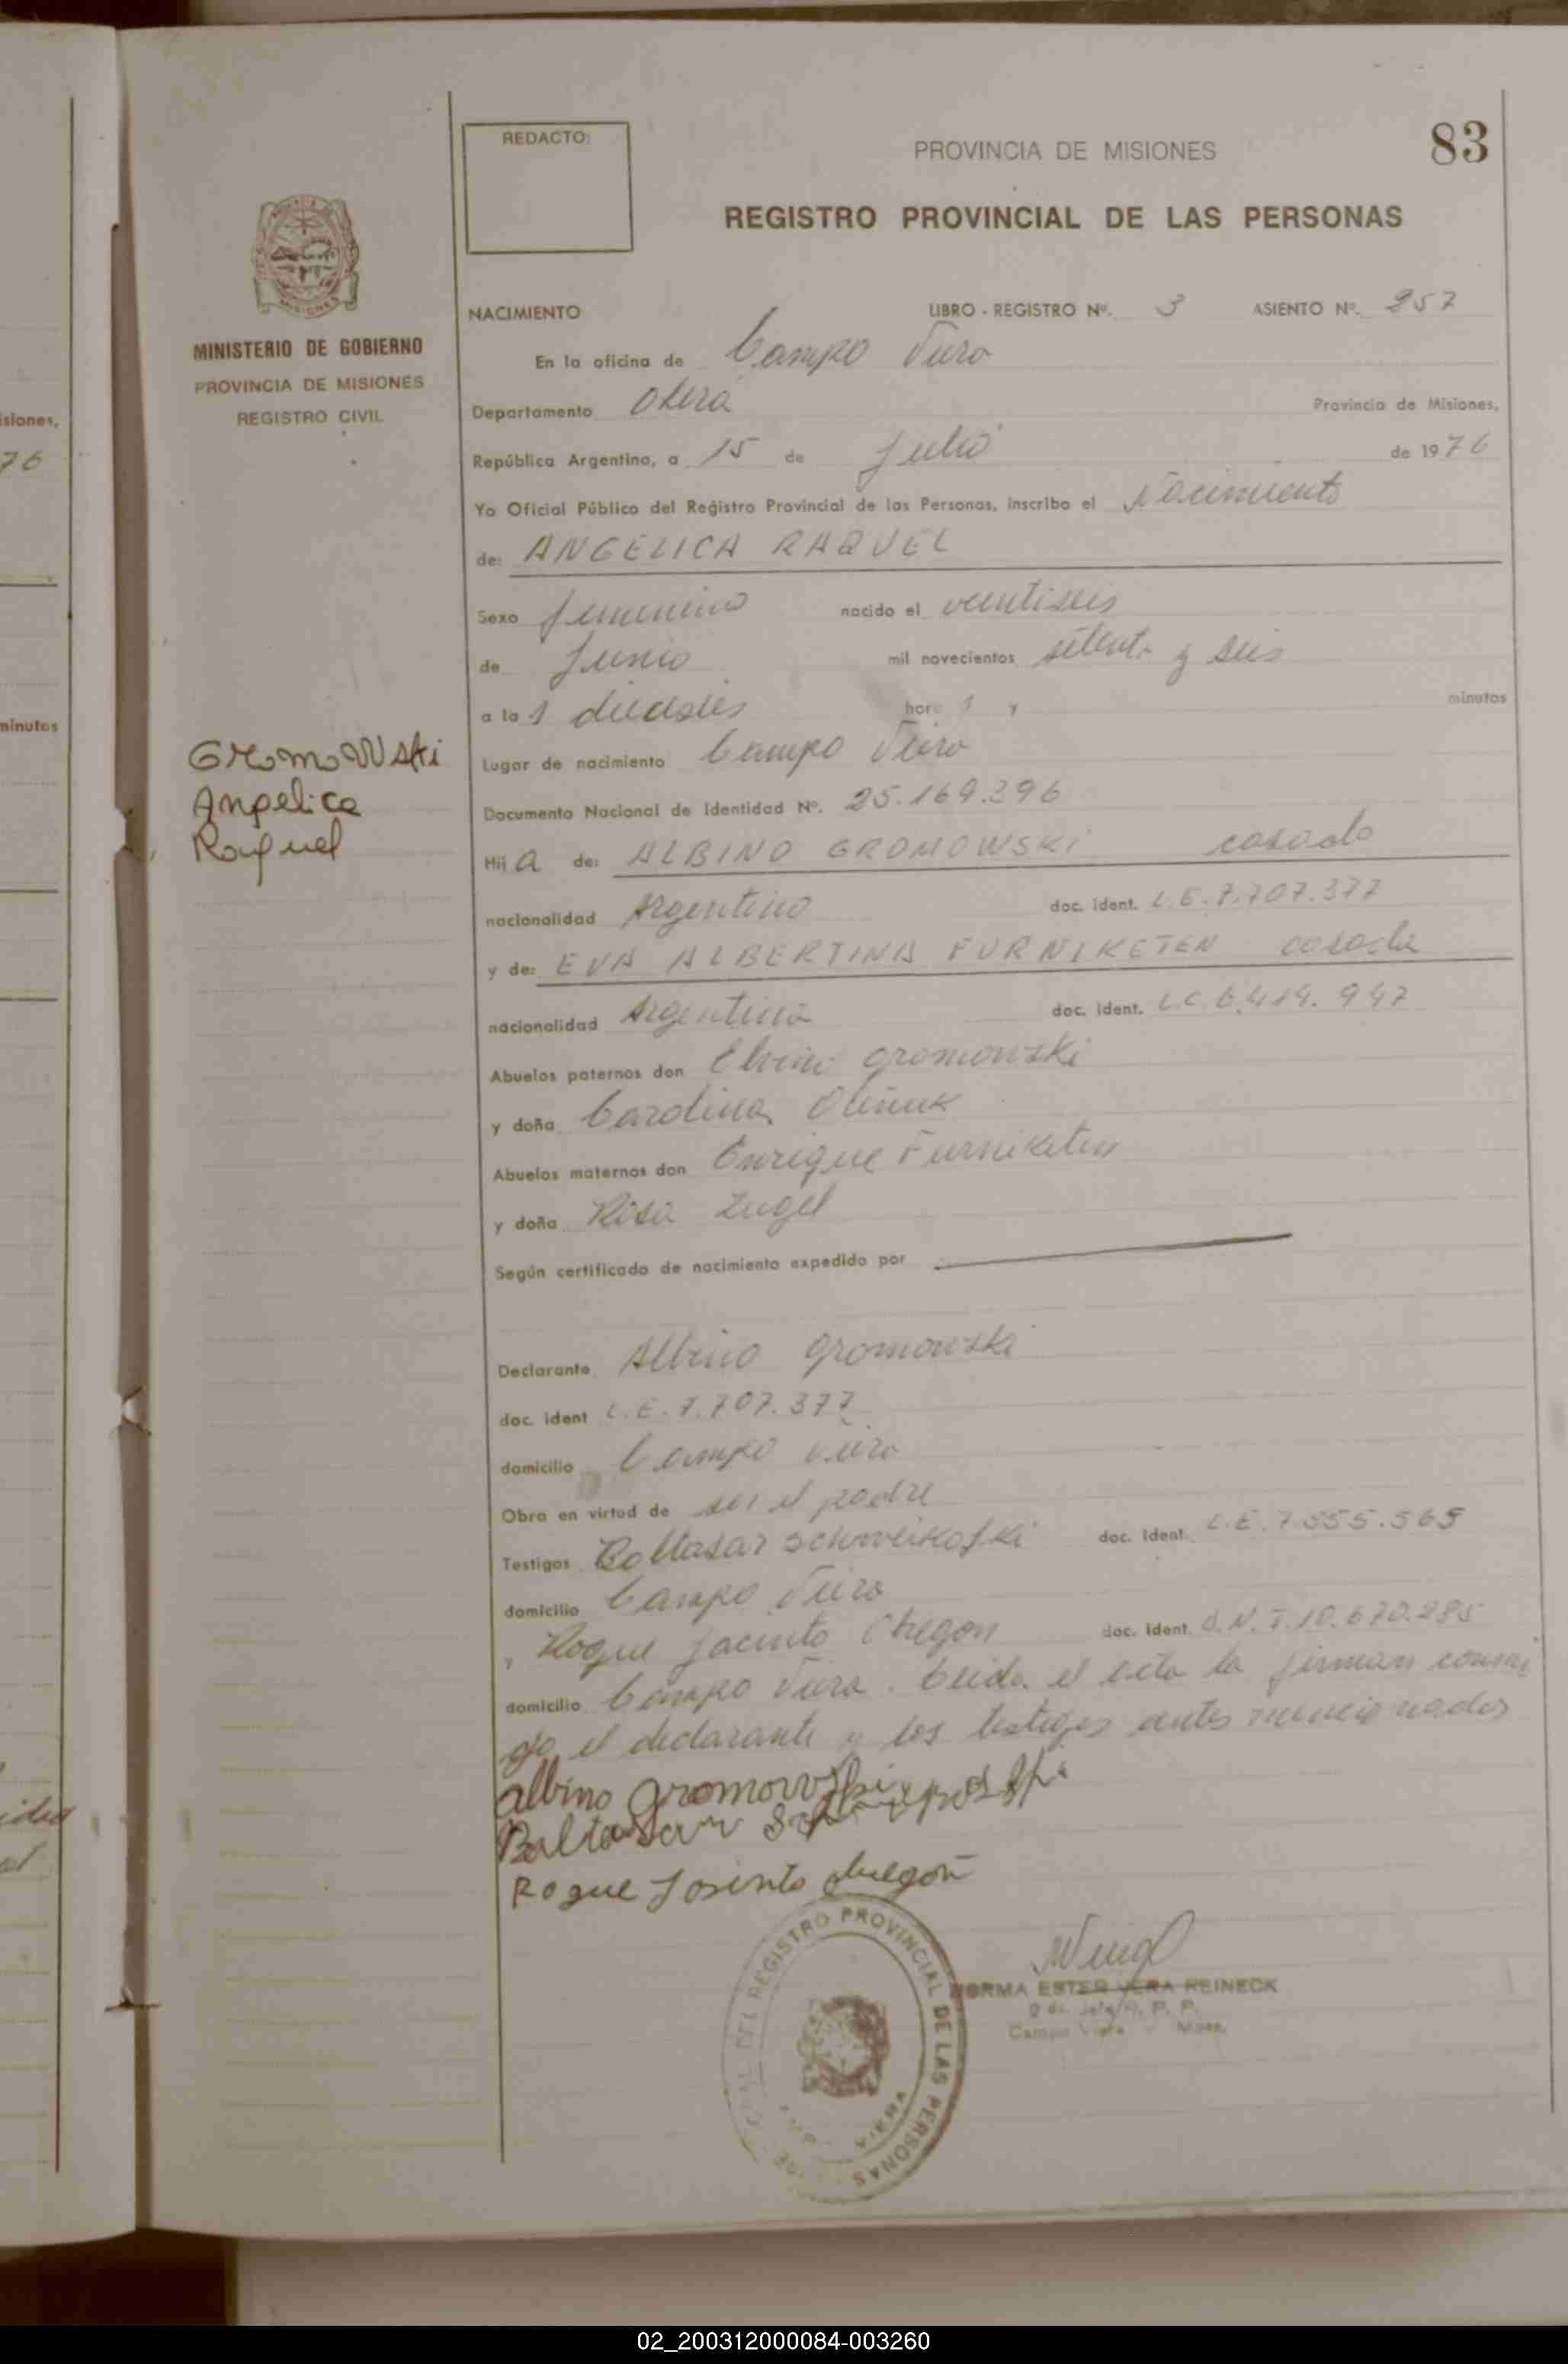 REDACTO:
PROVINCIA DE MISIONES
83
REGISTRO PROVINCIAL DE LAS PERSONAS
MISIONES
MINISTERIO DE GOBIERNO
PROVINCIA DE MISIONES
REGISTRO CIVIL
NACIMIENTO LIBRO - REGISTRO Nº. 3 ASIENTO Nº. 257
En la oficina de Campo Viera
Departamento Oberá Provincia de Misiones,
República Argentina, a 15 de Julio de 1976
Yo Oficial Público del Registro Provincial de las Personas, inscribo el Nacimiento
de: ANGELICA RAQUEL
Sexo femenino nacido el veintiseis
de Junio mil novecientos setenta y seis
a las dieciseis hora s y minutos
Lugar de nacimiento Campo Viera
Documento Nacional de Identidad Nº. 25.169.396
Gromowski
Angelica
Raquel
Hij a de: ALBINO GROMOWSKI casado
nacionalidad Argentino doc. ident. L.E. 7.707.377
y de: EVA ALBERTINA FURNIKETEN casada
nacionalidad Argentina doc. ident. L.C. 6.414.947
Abuelos paternos don gromowski
y doña Carolina
Abuelos maternos don Enrique Furniketen
y doña Rosa
Según certificado de nacimiento expedido por
Declarante Albino gromowski
doc. ident L.E. 7.707.377
domicilio Campo Viera
Obra en virtud de ser el padre
Testigos Baltasar Schweikofski doc. ident. L.E. 7.555.565
domicilio Campo Viera
, Roque Jacinto Obregon doc. ident. D.N.I. 10.670.285
domicilio Campo Viera. Leida el acta la firman conmi
go el declarante y los testigos antes mencionados
albino gromowski
Baltasar
Roque Josinto
REGISTRO PROVINCIAL DE LAS PERSONAS
NORMA ESTER VERA REINECK
Campo Viera - Mnes.
siones,
76
minutos
02_200312000084-003260